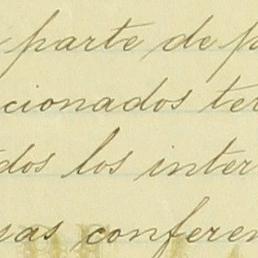 parte de p
cionados ter
dos los inter
sas conferen